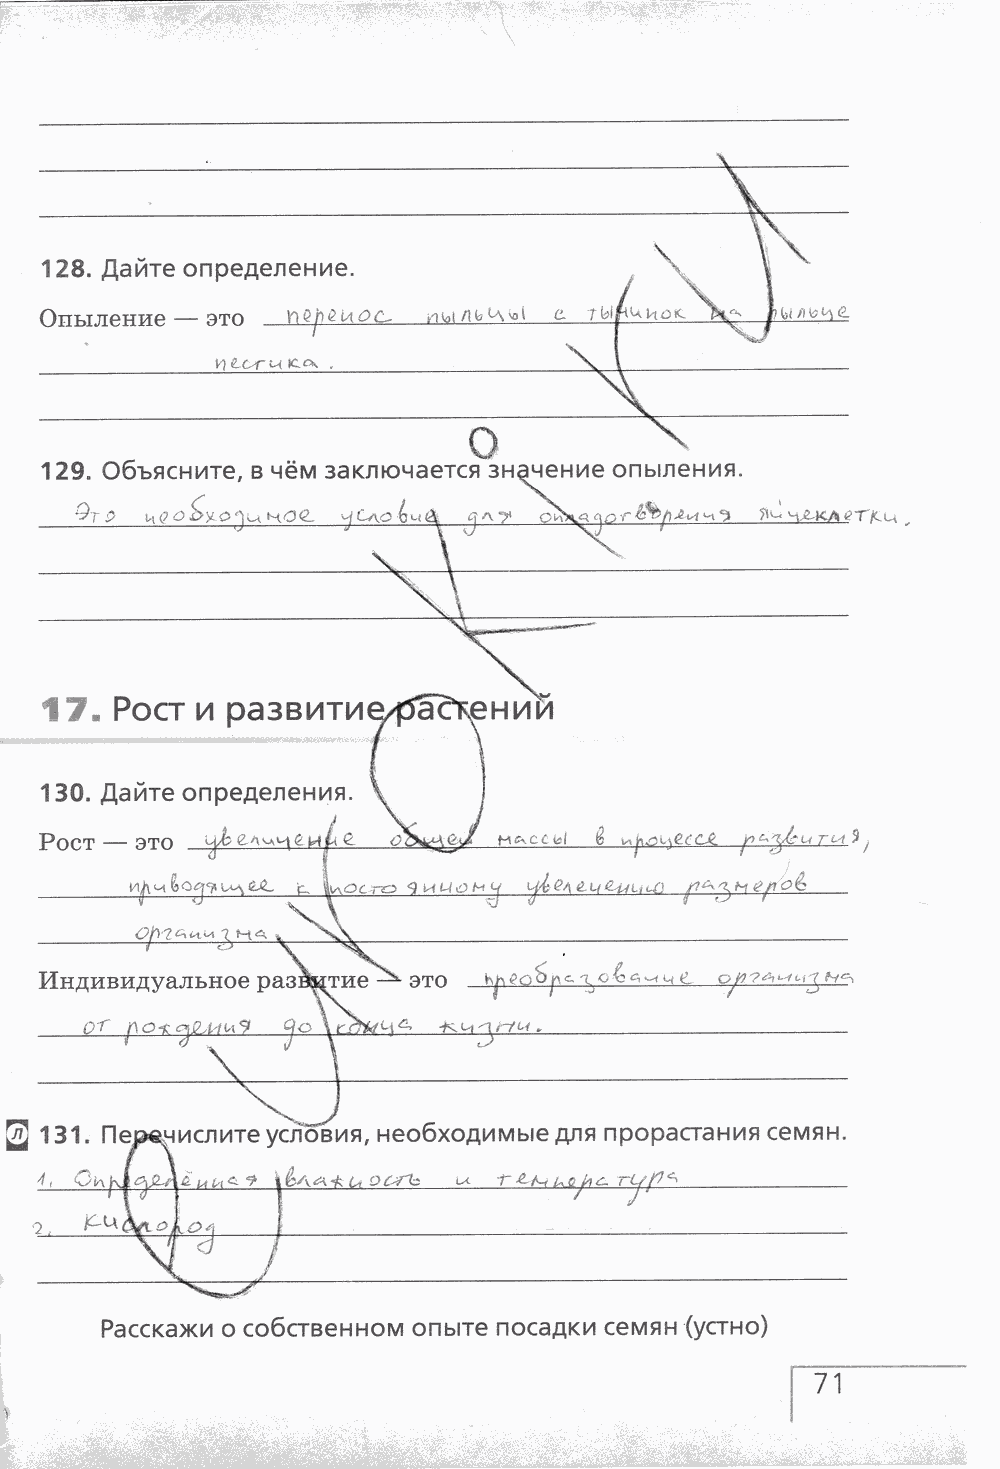 128. Дайте определение.
Опыление — это перенос пыльцы с тычинок на рыльце
пестика.
129. Объясните, в чём заключается значение опыления.
Это необходимое условие для оплодотворения яйцеклетки.
17. Рост и развитие растений
130. Дайте определения.
Рост — это увеличение общей массы в процессе развития,
приводящее к постоянному увелечению размеров
организма
Индивидуальное развитие — это преобразование организма
от рождения до конца жизни.
Л 131. Перечислите условия, необходимые для прорастания семян.
1. Определённая влажность и температура
2. Кислород
Расскажи о собственном опыте посадки семян (устно)
71